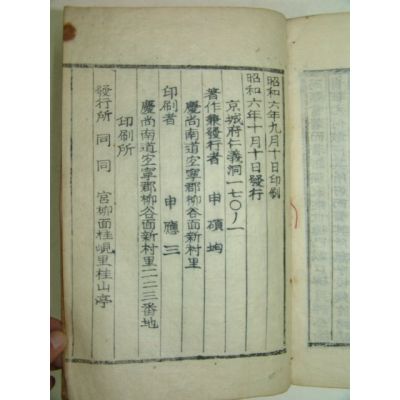 昭和六年九月十日印刷
昭和六年十月十日發行
京城府仁義洞一七〇ノ一
著作兼發行者 申碩均
慶尚南道宜寧郡柳谷面新村里
印刷者 申應三
慶尚南道宜寧郡柳谷面新村里二二三番地
印刷所
發行所 同同 宮柳面桂峴里桂山亭